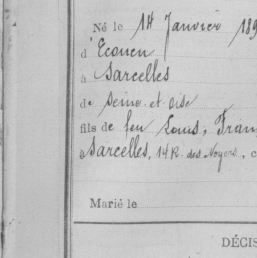 Né le 14 Janvier 189
d'Ecouen
à Sarcelles
de Seine et Oise
fils de feu Louis, Fran
à Sarcelles, 14 R. des Noyers, c
Marié le
DÉCIS